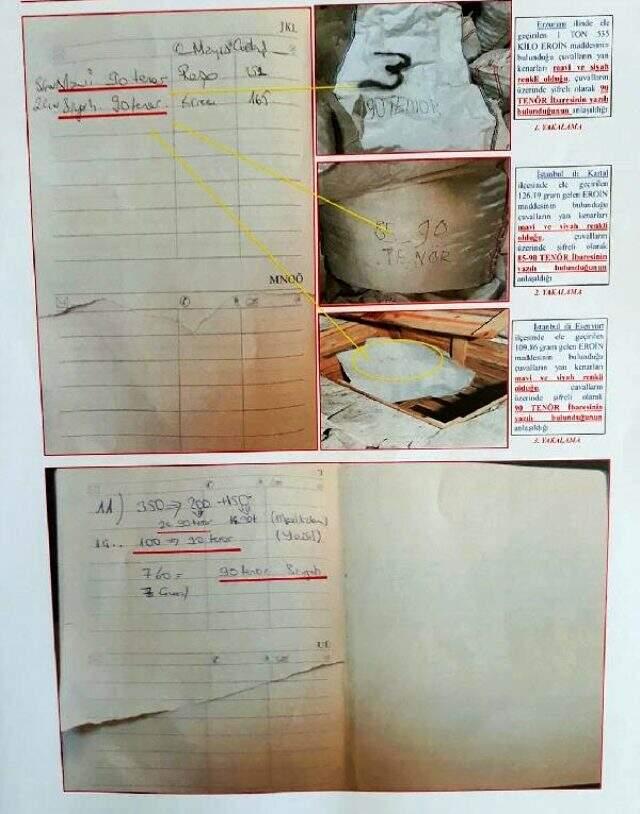 JKL
90 tenor
Siyah 90 tenor 165
MNOÖ
3
90 TENÖR
90
TENÖR
Erzurum ilinde ele
geçirilen 1 TON 535
KİLO EROİN maddesinin
bulunduğu çuvalların yan
kenarları mavi ve siyah
renkli olduğu, çuvalların
üzerinde şifreli olarak 90
TENÖR İbaresinin yazılı
bulunduğunun anlaşıldığı
1. YAKALAMA
İstanbul ili Kartal
ilçesinde ele geçirilen
126.19 gram gelen EROİN
maddesinin bulunduğu
çuvalların yan kenarları
mavi ve siyah renkli
olduğu, çuvalların
üzerinde şifreli olarak
85-90 TENÖR İbaresinin
yazılı bulunduğunun
anlaşıldığı
2. YAKALAMA
İstanbul ili Esenyurt
ilçesinde ele geçirilen
109.86 gram gelen EROİN
maddesinin bulunduğu
çuvalların yan kenarları
mavi ve siyah renkli
olduğu, çuvalların
üzerinde şifreli olarak
90 TENÖR İbaresinin
yazılı bulunduğunun
anlaşıldığı
3. YAKALAMA
11) 350 ⇒ 200 +150
90 tenor
100 ⇒ 90 tenor
760 = 90 tenor Siyah